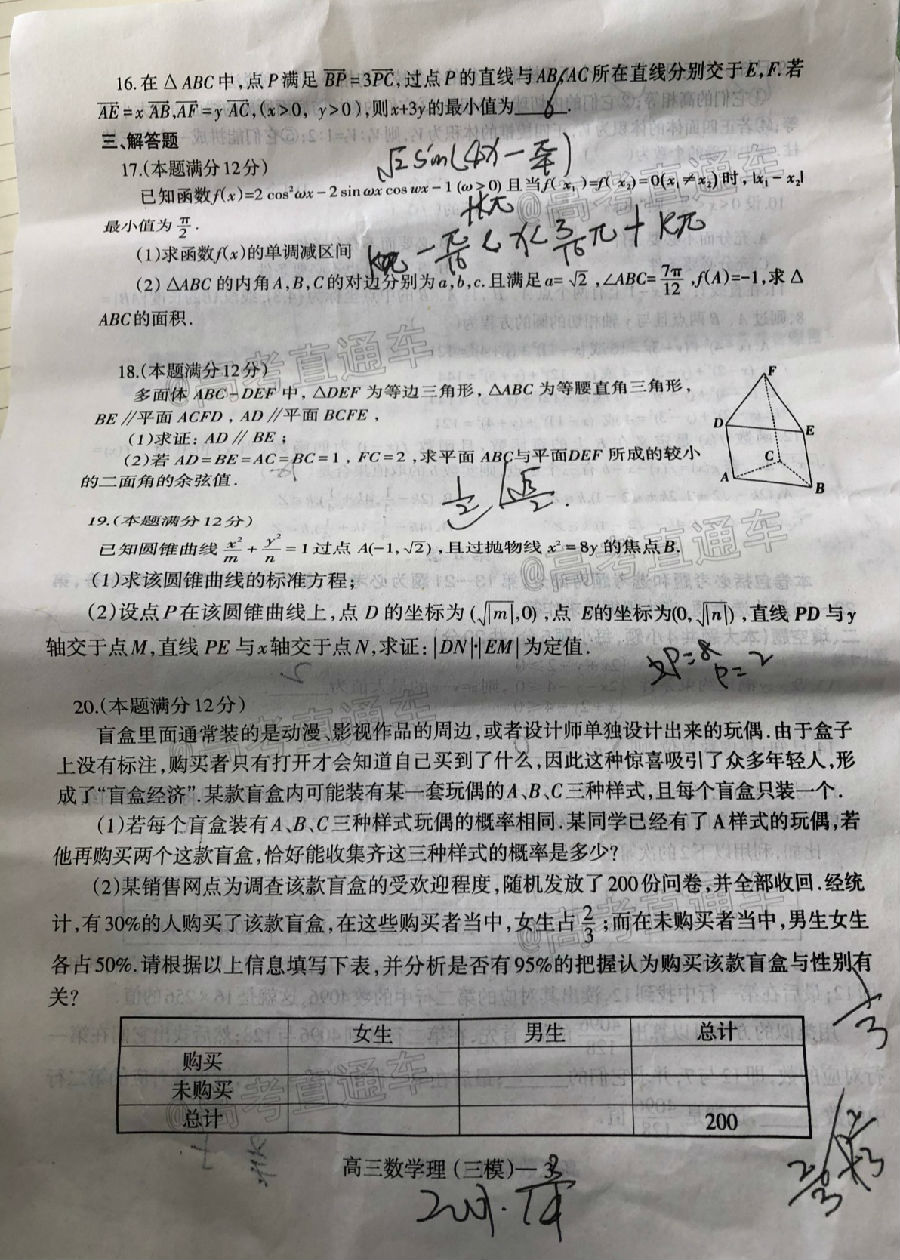 16.在△ABC中,点P满足BP=3PC,过点P的直线与AB,AC所在直线分别交于E,F.若
AE=xAB,AF=yAC,(x>0, y>0),则x+3y的最小值为 6 .
三、解答题
17.(本题满分12分)
√2sin(4x-π/4)
已知函数f(x)=2cos²ωx-2sinωxcoswx-1(ω>0)且当f(x₁)=f(x₂)=0(x₁≠x₂)时,|x₁-x₂|
最小值为π/2.
(1)求函数f(x)的单调减区间
kπ-π/16<x<3/16π+kπ
(2)△ABC的内角A,B,C的对边分别为a,b,c.且满足a=√2,∠ABC=7π/12,f(A)=-1,求△
ABC的面积.
18.(本题满分12分)
多面体ABC-DEF中,△DEF为等边三角形,△ABC为等腰直角三角形,
BE∥平面ACFD,AD∥平面BCFE,
(1)求证:AD∥BE;
(2)若AD=BE=AC=BC=1,FC=2,求平面ABC与平面DEF所成的较小
的二面角的余弦值.
F
D
E
C
A
B
19.(本题满分12分)
已知圆锥曲线x²/m+y²/n=1过点A(-1,√2),且过抛物线x²=8y的焦点B.
(1)求该圆锥曲线的标准方程;
(2)设点P在该圆锥曲线上,点D的坐标为(√|m|,0),点E的坐标为(0,√|n|),直线PD与y
轴交于点M,直线PE与x轴交于点N,求证:|DN|·|EM|为定值.
2P=8
P=2
20.(本题满分12分)
盲盒里面通常装的是动漫、影视作品的周边,或者设计师单独设计出来的玩偶.由于盒子
上没有标注,购买者只有打开才会知道自己买到了什么,因此这种惊喜吸引了众多年轻人,形
成了“盲盒经济”.某款盲盒内可能装有某一套玩偶的A、B、C三种样式,且每个盲盒只装一个.
(1)若每个盲盒装有A、B、C三种样式玩偶的概率相同.某同学已经有了A样式的玩偶,若
他再购买两个这款盲盒,恰好能收集齐这三种样式的概率是多少?
(2)某销售网点为调查该款盲盒的受欢迎程度,随机发放了200份问卷,并全部收回.经统
计,有30%的人购买了该款盲盒,在这些购买者当中,女生占2/3;而在未购买者当中,男生女生
各占50%.请根据以上信息填写下表,并分析是否有95%的把握认为购买该款盲盒与性别有
关?
女生 男生 总计
购买
未购买
总计 200
高三数学理(三模)—3
@高考直通车
@高考直通车
@高考直通车
@高考直通车
@高考直通车
@高考直通车